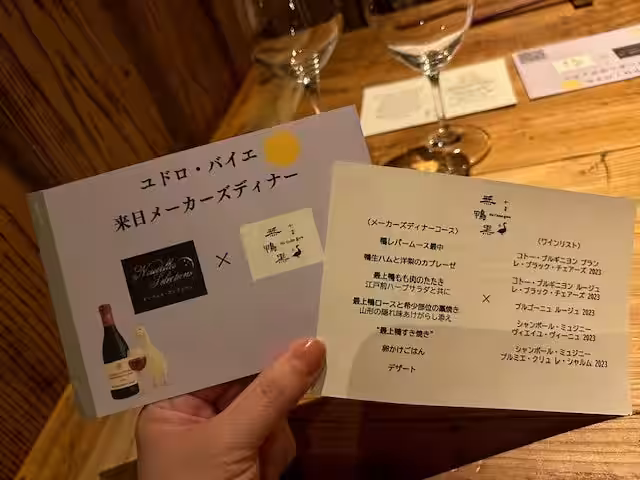 ユドロ・バイエ
来日メーカーズディナー
×
無
鴨
黒
無
鴨
黒
〈メーカーズディナーコース〉
鴨レバームース最中
鴨生ハムと洋梨のカプレーゼ
最上鴨もも肉のたたき
江戸前ハーブサラダと共に
最上鴨ロースと希少部位の藁焼き
山形の隠れ味あけがらし添え
"最上鴨すき焼き"
卵かけごはん
デザート
×
〈ワインリスト〉
コトー・ブルギニヨン ブラン
レ・ブラック・チェアーズ 2023
コトー・ブルギニヨン ルージュ
レ・ブラック・チェアーズ 2023
ブルゴーニュ ルージュ 2023
シャンボール・ミュジニー
ヴィエイユ・ヴィーニュ 2023
シャンボール・ミュジニー
プルミエ・クリュ レ・シャルム 2023